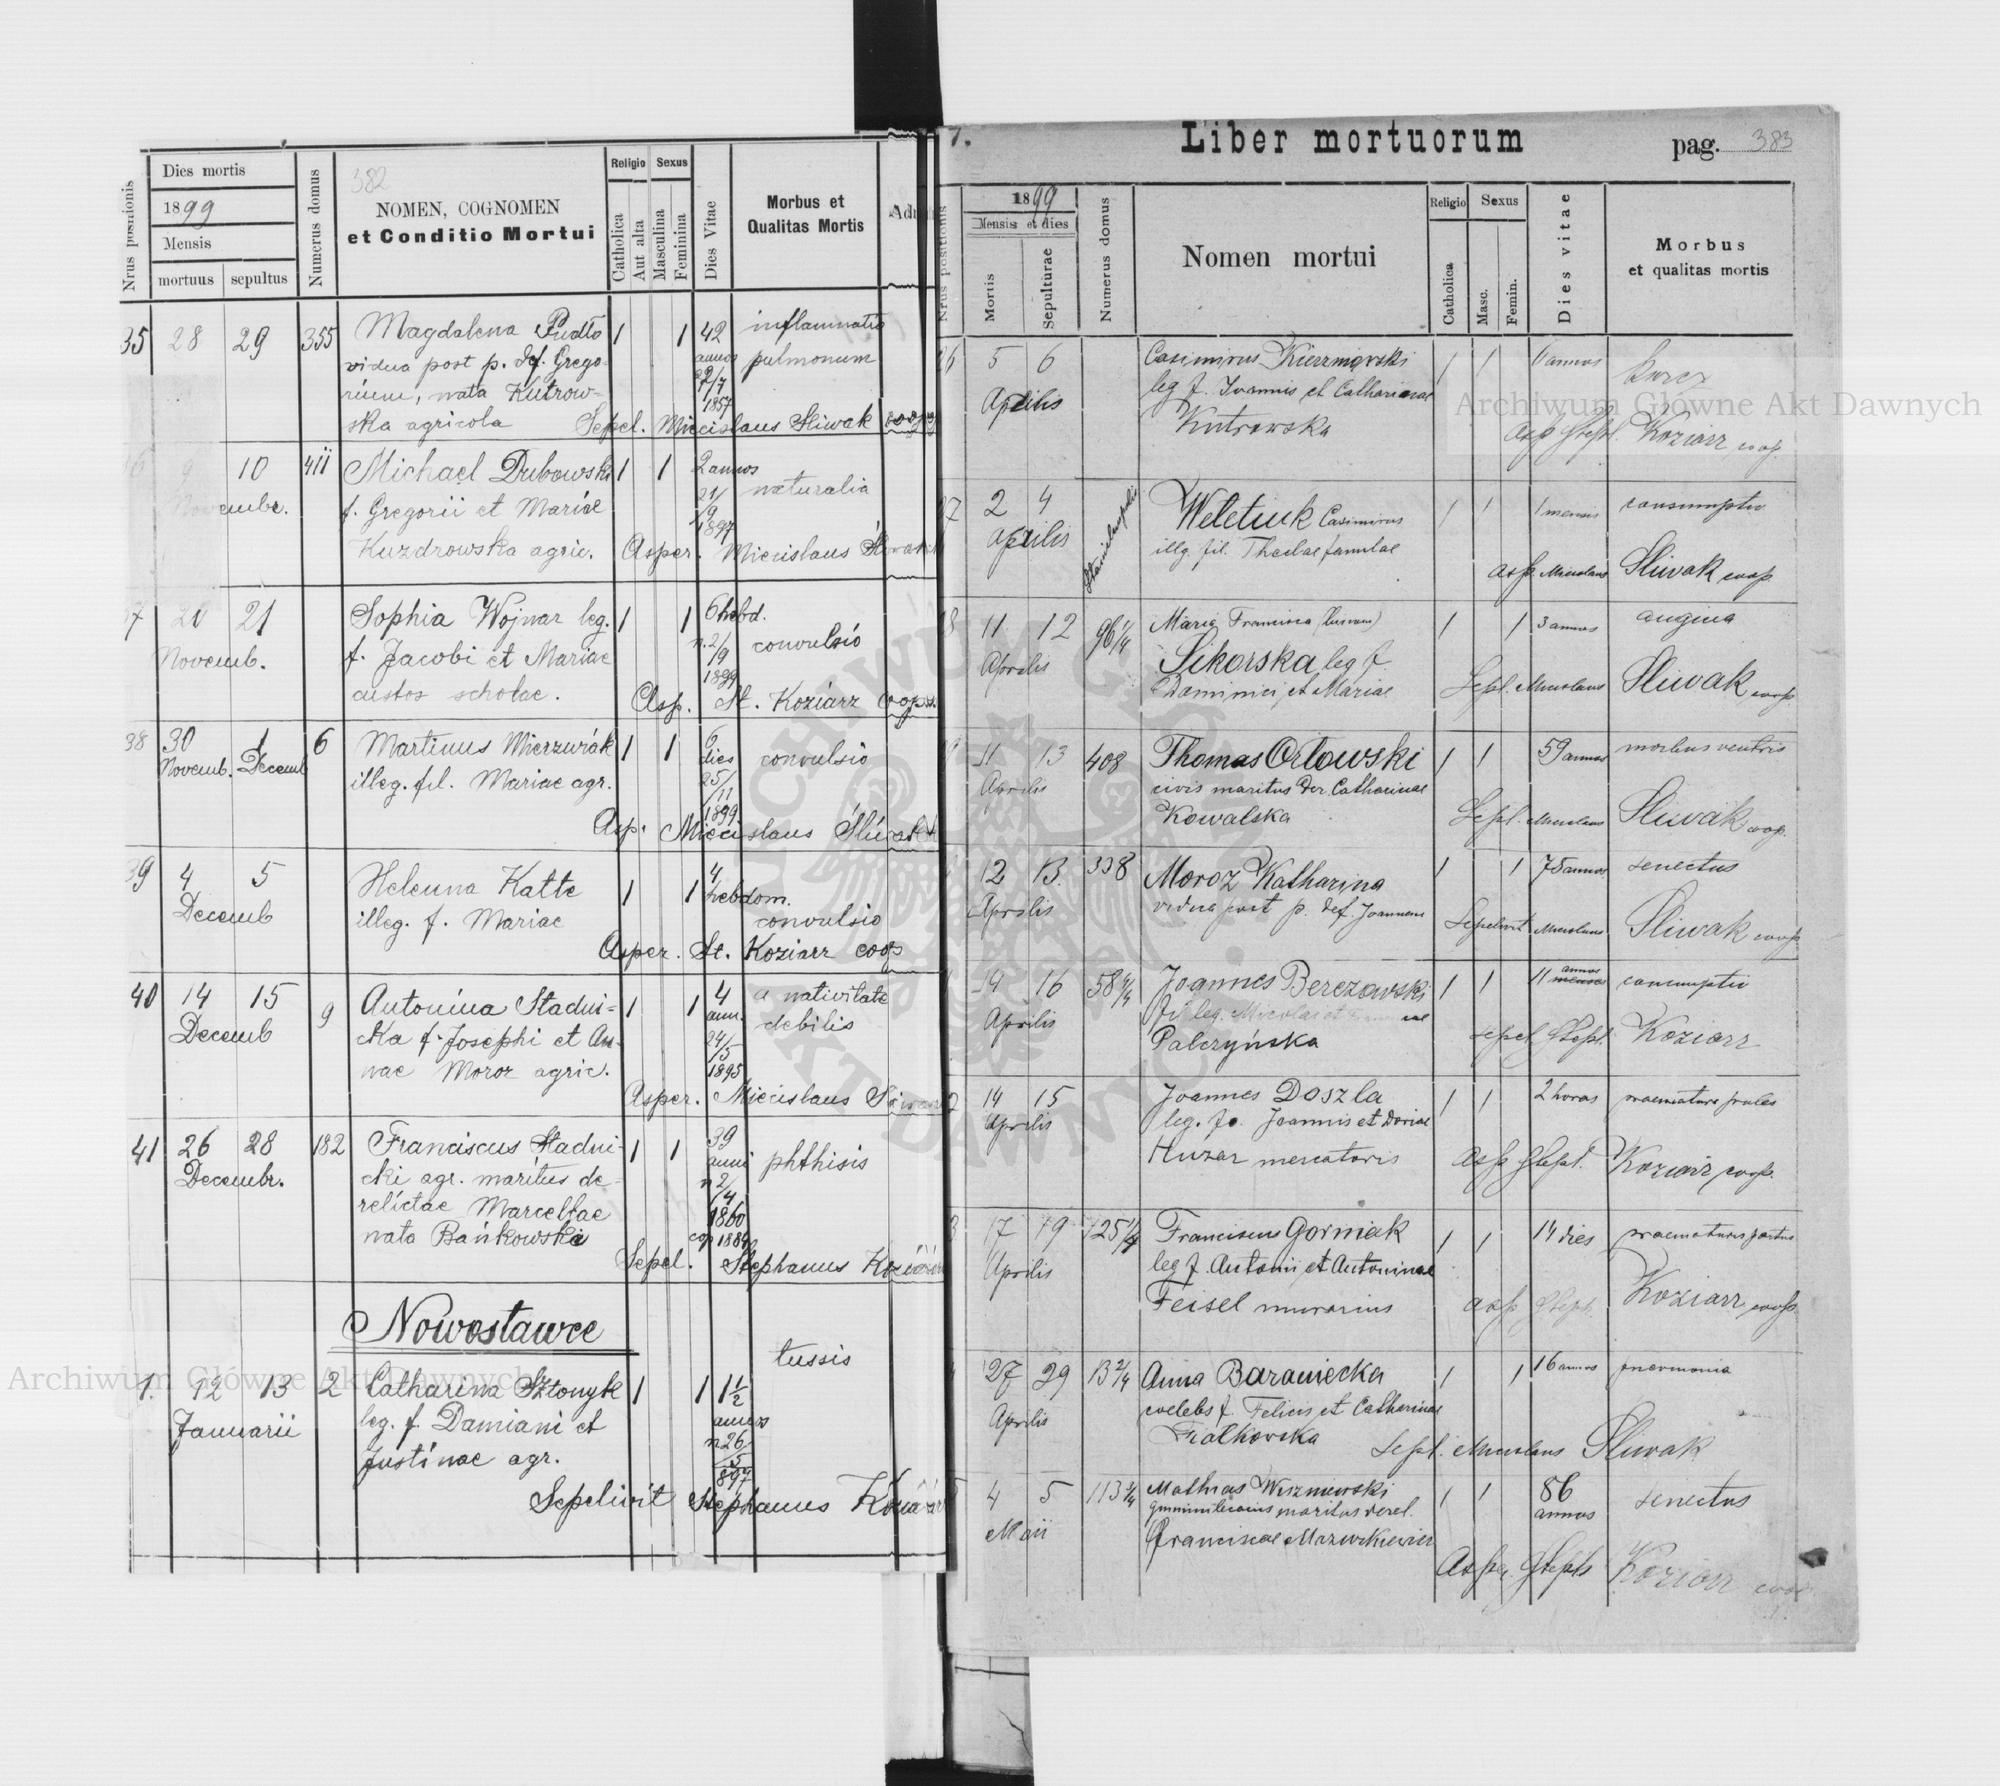 Nrus positionis
Dies mortis
1899
Mensis
mortuus sepultus
Numerus domus
382
NOMEN, COGNOMEN
et Conditio Mortui
Religio Sexus
Catholica
Aut alta
Masculina
Feminina
Dies Vitae
Morbus et
Qualitas Mortis
35 28 29 355 Magdalena Pudło 1 1 42 inflammatio
vidua post p. def. Grego- annos pulmonum
rium, nata Kutrow- 22/7
ska agricola 1857
Sepel. Miecislaus Śliwak coop
10 411 Michael Dubowski 1 1 2 annos
Novembr. f. Gregorii et Mariae 21/9 naturalia
Kuzdrowska agric. 1897
Asper. Miecislaus Śliwak
20 21 Sophia Wojnar leg. 1 1 6 hebd.
Novemb. f. Jacobi et Mariae n. 2/9 convulsio
custos scholae. 1899
Asp. St. Koziarz coop.
38 30 1 6 Martinus Mierzwiak 1 1 6 convulsio
Novemb. Decemb illeg. fil. Mariae agr. dies
25/11
1899
Asp. Miecislaus Śliwak
39 4 5 Helenna Katte 1 1 4
Decemb illeg. f. Mariae hebdom.
convulsio
Asper. St. Koziarz coop
40 14 15 9 Antonina Stadni- 1 1 4 a nativitate
Decemb cka f. Josephi et An- ann. debilis
nae Moroz agric. 24/5
1895
Asper. Miecislaus
41 26 28 182 Franciscus Stadni- 1 1 39
Decembr. cki agr. maritus de- anni phthisis
relictae Marcellae n 2/4
nata Bańkowska 1860
cop 1884
Sepel. Stephanus
Nowostawce
tussis
1. 12 13 2 Catharina Sztonyk 1 1 1½
Januarii leg. f. Damiani et annos
Justinae agr. n 26/5
897
Sepelivit Stephanus
Liber mortuorum pag. 383
Nrus positionis
1899
Mensis et dies
Mortis
Sepulturae
Numerus domus
Nomen mortui
Religio Sexus
Catholica
Masc.
Femin.
Dies vitae
Morbus
et qualitas mortis
5 6 Casimirus 1 1 6 annos
Aprilis leg f. Joannis et Catharinae
Kutrowska Asp Steph. Koziarz coop.
2 4 Stanislaupolis Weletiuk Casimirus 1 1 1 mensis consumptio
Aprilis illg. fil. Theclae famulae
asp. Miecislaus Śliwak coop
11 12 96 1/4 Maria Francisca 1 1 3 annos angina
Aprilis Sikorska leg f.
Dominici et Mariae Sepl. Miecislaus Śliwak coop
11 13 408 Thomas Orłowski 1 1 59 annos morbus ventris
Aprilis civis maritus der. Catharinae
Kowalska Sepl. Miecislaus Śliwak coop.
12 13. 338 Moroz Katharina 1 1 75 annos senectus
Aprilis vidua post p. def. Joannem
Sepelivit Miecislaus Śliwak coop
14 16 58 Joannes Berezowski 1 1 11 annos consumptio
Aprilis fil leg. Nicolai et
Palczyńska sepel Steph. Koziarz
14 15 Joannes Doszla 1 1 2 horas
Aprilis leg. f. Joannis et Doriae
Huzar mercatoris asp Steph. Koziarz coop.
17 19 125 1/4 Franciscus Gorniak 1 1 14 dies praematurus partus
Aprilis leg f. Antonii et Antoninae
Feisel murarius asp Steph. Koziarz coop.
27 29 Anna Baraniecka 1 1 16 annos pneumonia
Aprilis coelebs f. Felicis et Catharinae
Fialkowska Sepl. Miecislaus Śliwak
4 5 113 Mathias Wiszniewski 1 1 86 senectus
Maii maritus derel. annos
Franciscae
Asper. Steph Koziarz coop.
Archiwum Główne Akt Dawnych
Archiwum Główne Akt Dawnych
ARCHIWUM GŁÓWNE AKT DAWNYCH